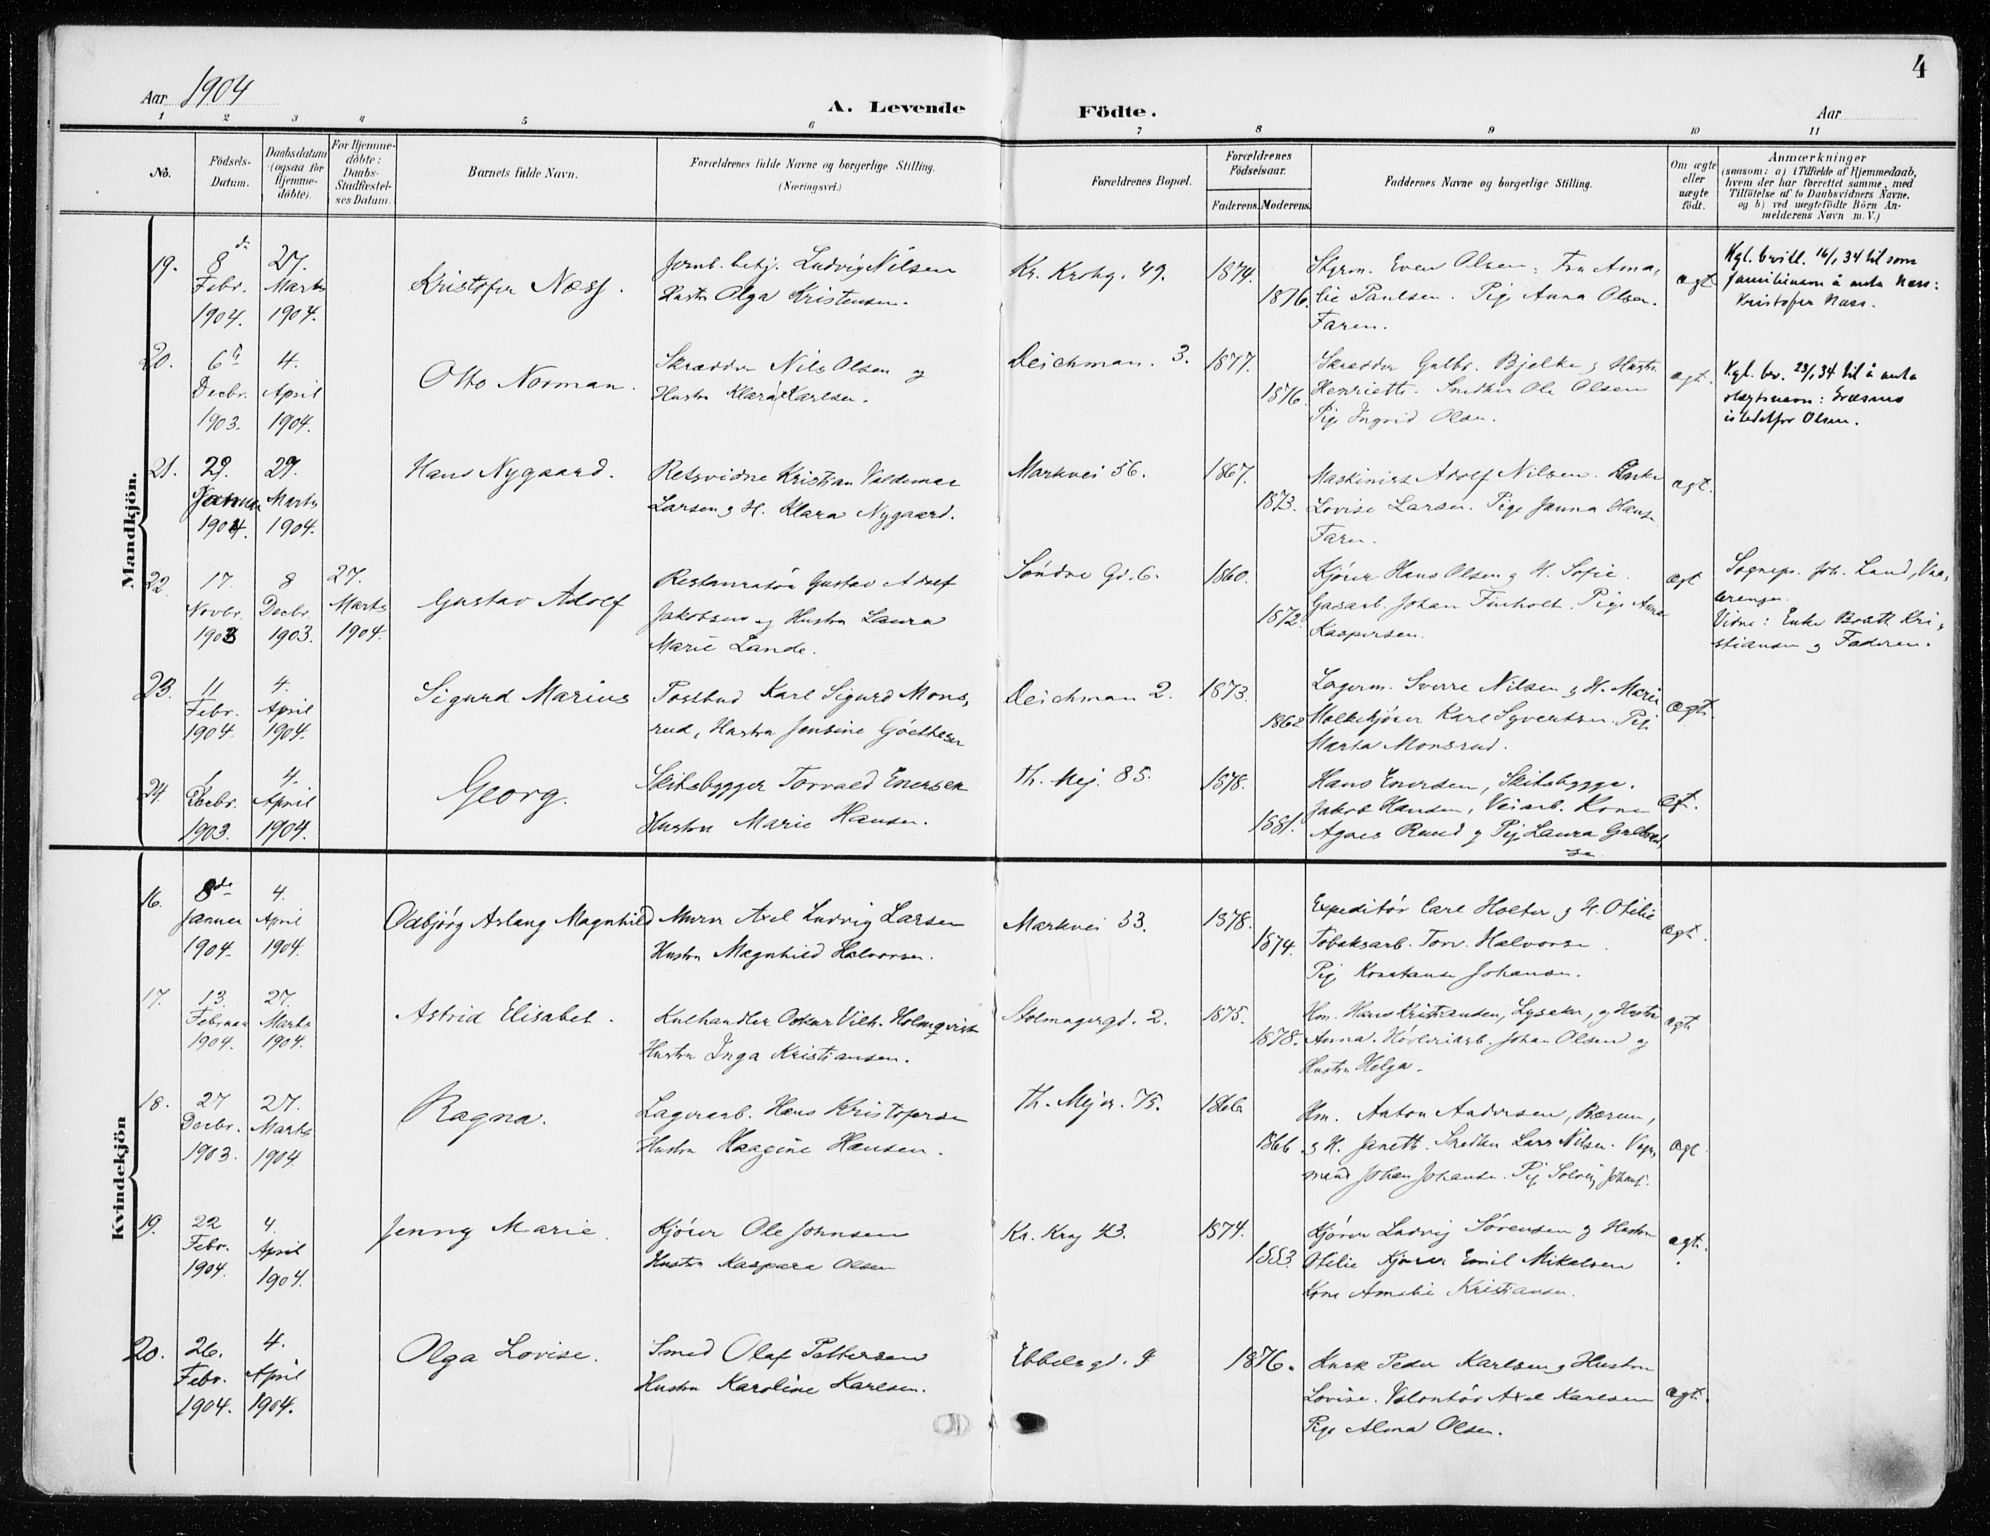 4
Aar 1904
A. Levende Födte.
Aar
1 2 3 4 5 6 7 8 9 10 11
No.
Födsels-
Datum.
Daabsdatum
(ogsaa for
Hjemme-
döbte).
For Hjemme-
döbte:
Daabs-
Stadfæstel-
ses Datum.
Barnets fulde Navn.
Forældrenes fulde Navne og borgerlige Stilling.
(Næringsvei.)
Forældrenes Bopæl.
Forældrenes
Födselsaar.
Faderens. Moderens.
Faddernes Navne og borgerlige Stilling.
Om ægte
eller
uægte
födt.
Anmærkninger
(saasom: a) i Tilfælde af Hjemmedaab,
hvem der har forrettet samme, med
Tilföielse af to Daabsvidners Navne.
og b) ved uægtefödte Börn An-
melderens Navn m. V.)
Mandkjön.
19.
8de
Febr.
1904.
27.
Marts
1904.
Kristofer Næss.
Jernb. betj. Ludvig Nilsen
Hustr Olga Kristensen.
Kr. Krohg. 49.
1874.
1876.
Styrm. Even Olsen. Fru Ama-
lie Paulsen. Pige Anna Olsen.
Faren.
ægt
Kgl. bevill. 16/1 34 til som
familienavn å anta Næss:
Kristofer Næss.
20.
6te
Decbr.
1903.
4.
April
1904.
Otto Norman.
Skrædder Nils Olsen og
Hustru Klara Karlsen.
Deichman. 3.
1877.
1876.
Skrædder Gulbr. Bjelke og Hustr
Henriette. Snedker Ole Olsen
Pige Ingrid Olsen.
ægt.
Kgl. bev. 23/1 34 til å anta
slægtsnavn:
istedetfor Olsen.
21.
29.
Januar
1904.
29.
Marts
1904.
Hans Nygaard.
Retsvidne Kristian Valdemar
Larsen og H. Klara Nygaard.
Markvei 56.
1867.
1873.
Maskinist Adolf Nilsen.
Lovise Larsen. Pige Janna Hanse
Faren.
ægt.
22.
17.
Novbr.
1903
8
Decbr.
1903.
27.
Marts
1904.
Gustav Adolf
Restauratör Gustav Adolf
Jakobsen og Hustru Laura
Marie Lande.
Söndre Gd. 6.
1860.
1872.
Kjörer Hans Olsen og H. Sofie.
Gasarb. Johan Finholt. Pige Anna
Kaspersen.
ægt
Sognepr. Joh. Lund, Vaa-
lerengen.
Vidne: Enke Kri-
stiansen og Faderen.
23.
11
Febr.
1904.
4.
April
1904.
Sigurd Marius
Postbud Karl Sigurd Mons-
rud, Hustru Jensine Göethesen
Deichman 2.
1873.
1862
Lagerm. Sverre Nilsen og H. Marie
Mælkekjörer Karl Syvertsen. Pige
Marta Monsrud.
ægt.
24.
1
Decbr.
1903.
4.
April
1904.
Georg.
Skibsbygger Torvald Enersen
Hustru Marie Hansen.
Th. Mej. 85.
1878.
1881.
Hans Enersen, Skibsbygge.
Jakob Hansen, Veiarb. Kone
Agnes Ruud og Pige Laura
Kvindekjön
16.
8de
Januar
1904.
4.
April
1904.
Odbjörg Aslaug Magnhild
Murer Axel Ludvig Larsen
Hustru Magnhild Halvorsen.
Markvei 33.
1878.
1874.
Expeditör Carl Holter og H. Otilie
Tobaksarb. Torv. Halvorsen.
Pige Konstanse Johansen.
ægt.
17.
13.
Februar
1904.
27.
Marts
1904.
Astrid Elisabet.
Kulhandler Oskar Vilh. Holmqvist
Hustru Inga Kristiansen.
Stolmagergd. 2.
1875.
1878.
Hm. Hans Kristiansen, Lysaker, og Hustru
Anna. Hövleriarb. Johan Olsen og
Hustru Helga.
ægt.
18.
27
Decbr.
1903.
27.
Marts
1904.
Ragna.
Lagerarb. Hans Kristofersen
Hustru Haagine Hansen.
Th. Mejer. 75.
1866.
1866
Hm. Anton Andersen, Bærum,
og H. Janette. Snedker Lars Nilsen. Vogn-
mand Johan Johansen. Pige Solveig Johans.
ægt.
19.
22
Febr.
1904.
4.
April
1904.
Jenny Marie.
Kjörer Ole Johnsen
Hustru Kaspara Olsen
Kr. Krog 43.
1874.
1883.
Kjörer Ludvig Sörensen og Hustru
Otilie Kjörer Emil Mikalsen
Kone Amalie Kristiansen.
ægt.
20.
26.
Febr.
1904.
4.
April
1904.
Olga Lovise.
Smed Olaf Pettersen
Hustru Karoline Karlsen.
Ebbelsgd. 4
1876.
Kusk Peder Karlsen og Hustru
Lovise. Volontör Axel Karlsen
Pige Alma Olsen.
ægt.